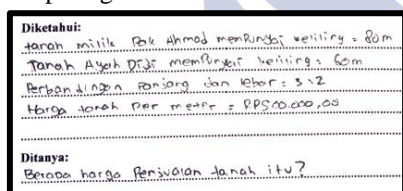 Diketahui:
tanah milik Pak Ahmad mempunyai keliling = 80m
Tanah Ayah Didi mempunyai keliling = 60m
Perbandingan Panjang dan lebar = 3:2
Harga tanah per meter = RP500.000,00
Ditanya:
Berapa harga Penjualan tanah itu?